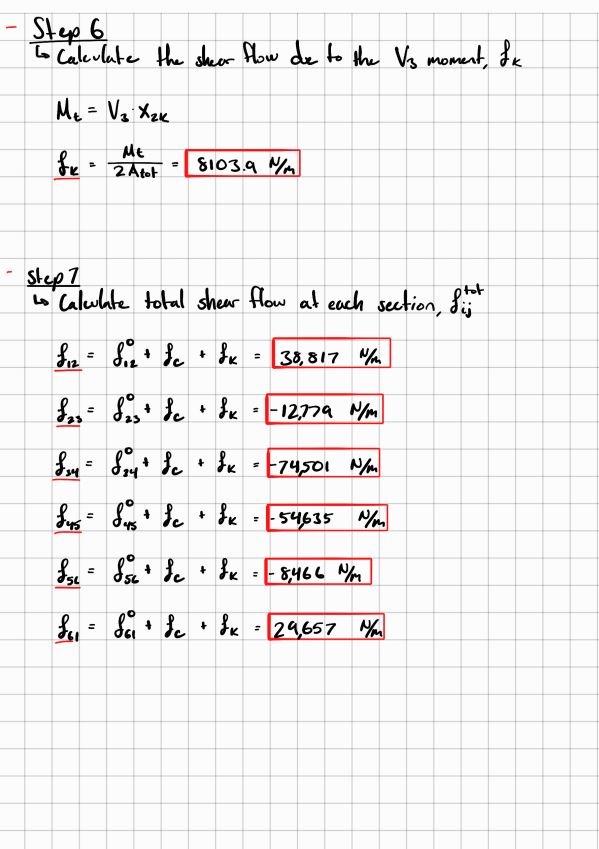 - Step 6
↳ Calculate the shear flow due to the V₃ moment, fₖ
Mₜ = V₃ · X₂ₖ
fₖ = Mₜ / 2Aₜₒₜ = 8103.9 N/m
- Step 7
↳ Calculate total shear flow at each section, f_ij^tot
f₁₂ = f₁₂⁰ + f_c + fₖ = 38,817 N/m
f₂₃ = f₂₃⁰ + f_c + fₖ = -12,779 N/m
f₃₄ = f₃₄⁰ + f_c + fₖ = -74,501 N/m
f₄₅ = f₄₅⁰ + f_c + fₖ = -54,635 N/m
f₅₆ = f₅₆⁰ + f_c + fₖ = -8,466 N/m
f₆₁ = f₆₁⁰ + f_c + fₖ = 29,657 N/m